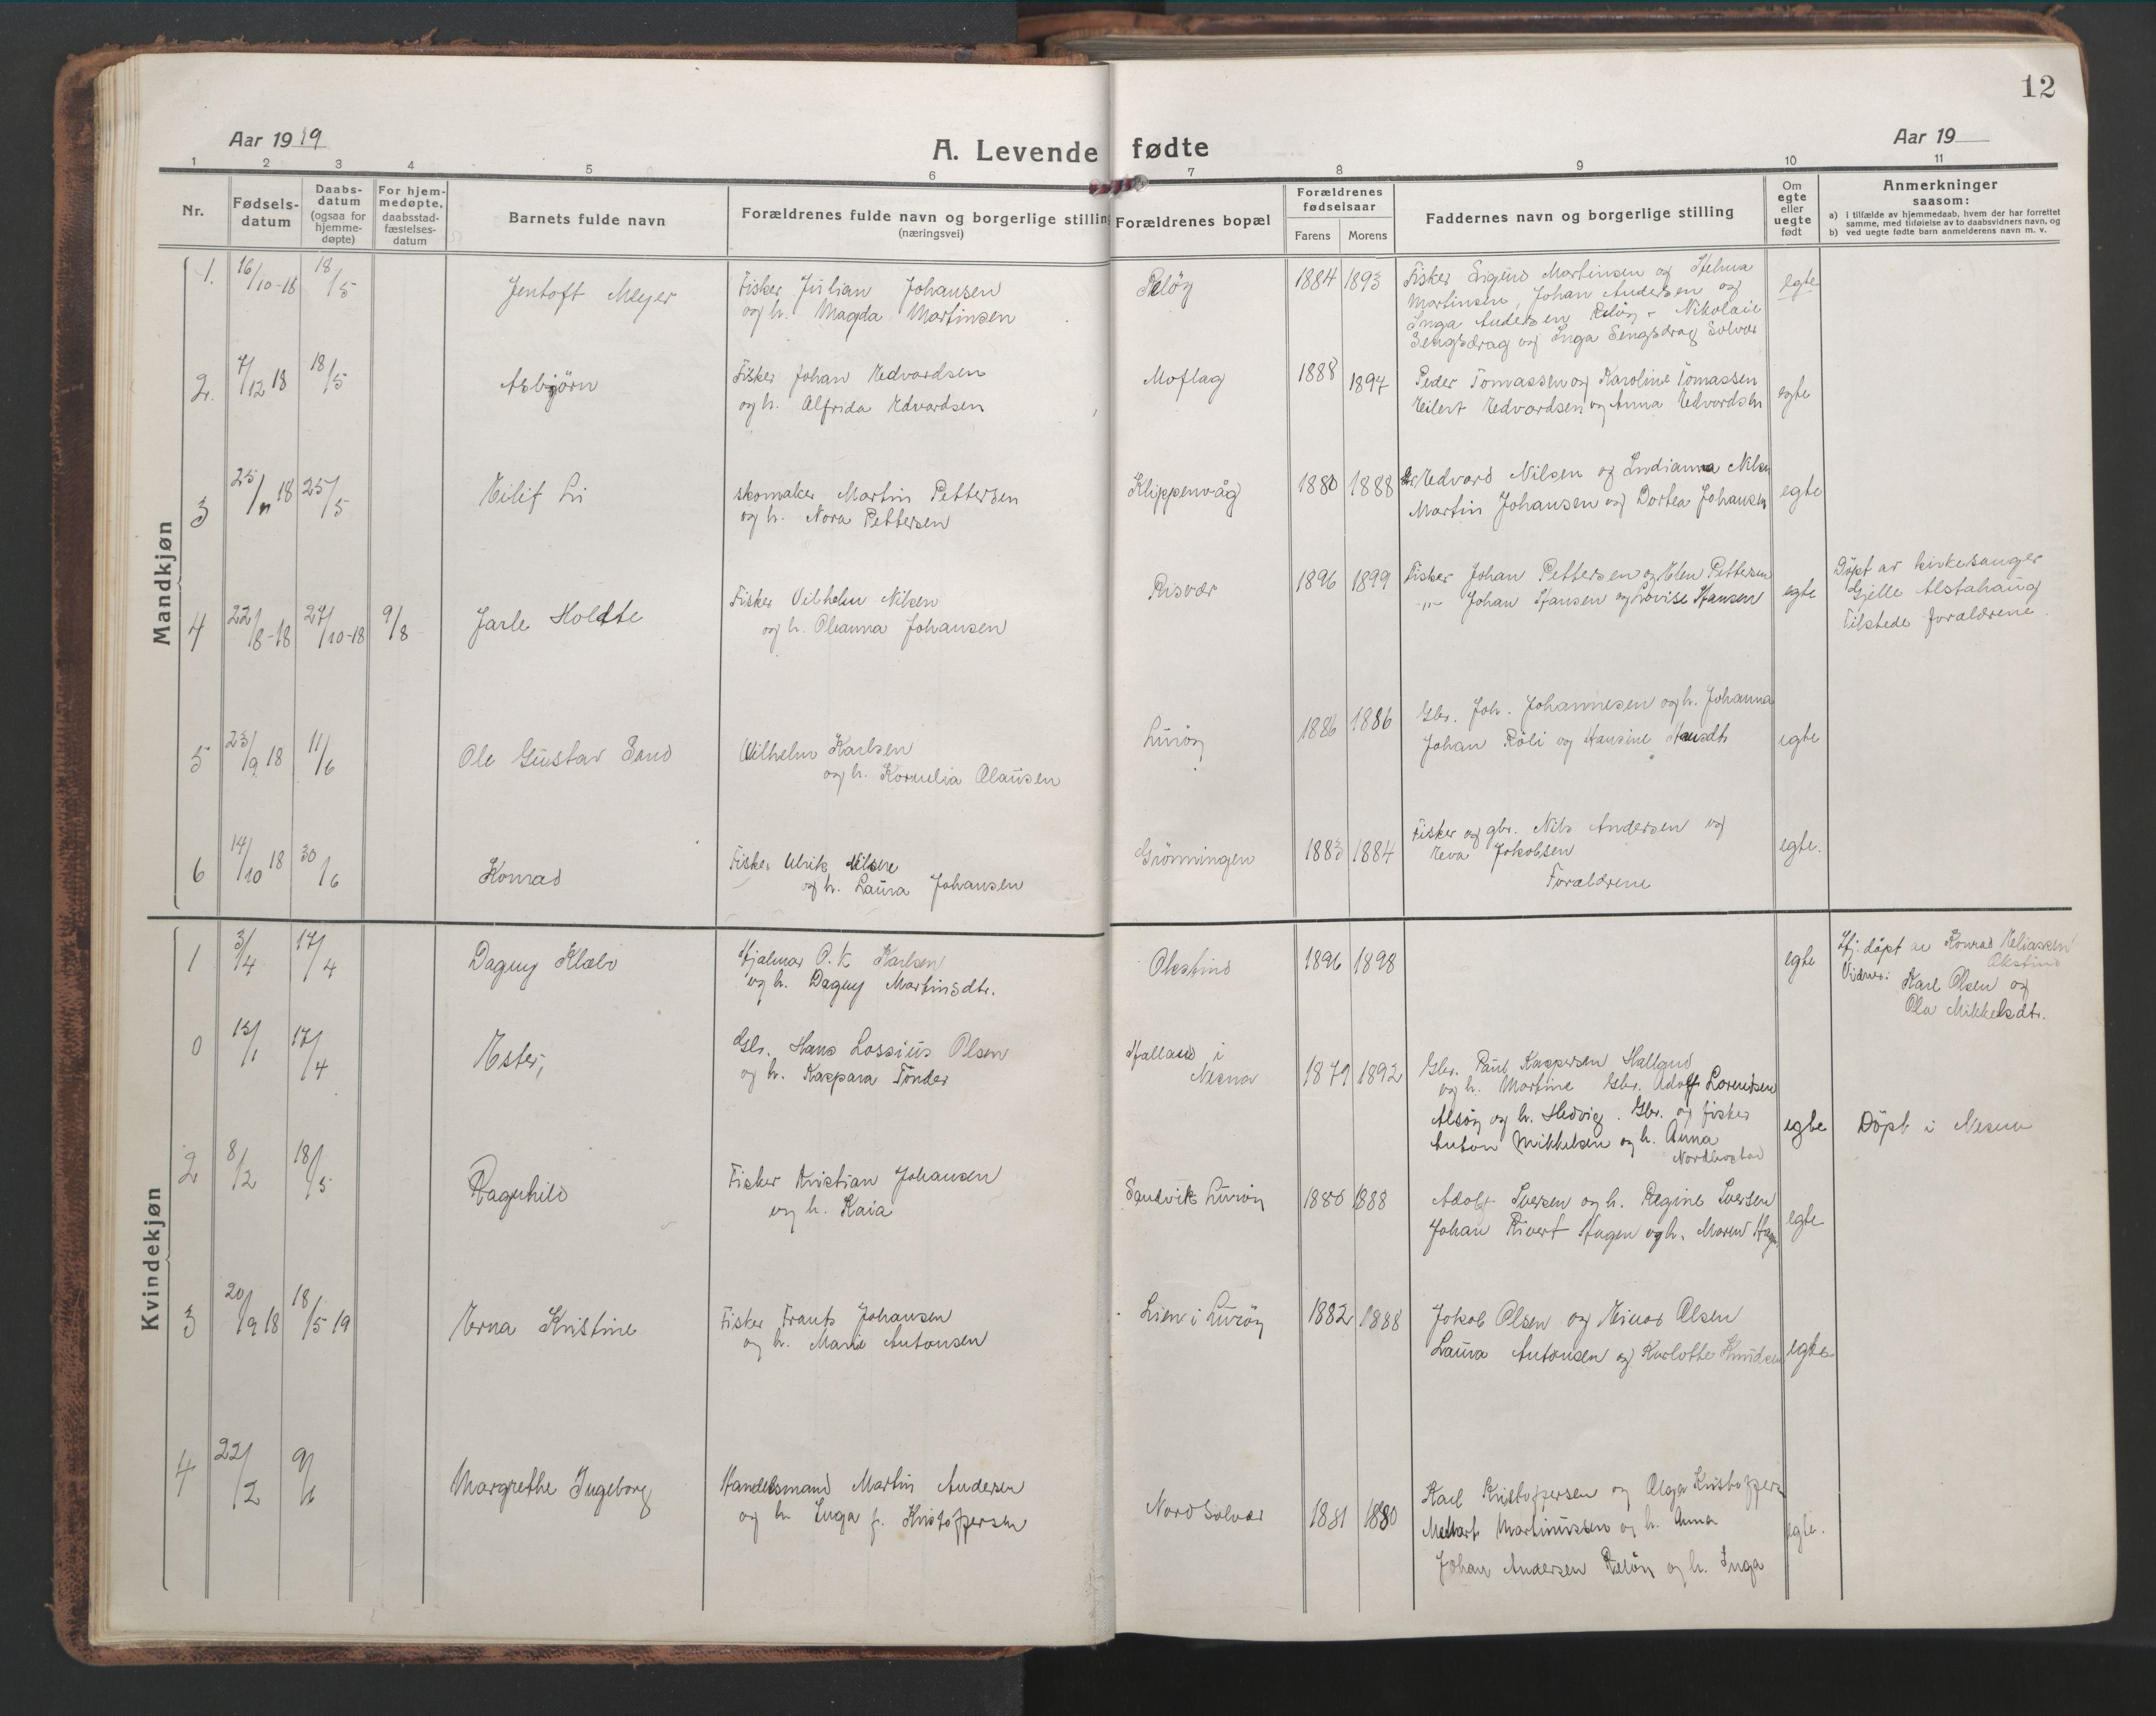 12
Aar 1919
A. Levende fødte
Aar 19
1 2 3 4 5 6 7 8 9 10 11
Nr.
Fødsels-datum
Daabs-datum (ogsaa for hjemme-døpte)
For hjem-medøpte, daabsstad-fæstelses-datum
Barnets fulde navn
Forældrenes fulde navn og borgerlige stilling (næringsvei)
Forældrenes bopæl
Forældrenes fødselsaar
Farens Morens
Faddernes navn og borgerlige stilling
Om egte eller uegte født
Anmerkninger saasom:
a) i tilfælde av hjemmedaab, hvem der har forrettet samme, med tilføielse av to daabsvidners navn, og
b) ved uegte fødte barn anmelderens navn m. v.
Mandkjøn
1. 16/10-18 18/5 Jentoft Meyer
Fisker Julian Johansen
og h. Magda Martinsen
Reløy 1884 1893
Fisker Sigurd Martinsen og
Martinsen, Johan Andersen og
Inga Andersen Reløy - Nikolai
Sengsdrag og Inga Sengsdrag Solvær
egte
2. 7/12 18 18/5 Asbjörn
Fisker Johan Edvardsen
og h. Alfrida Edvardsen
Moflag 1888 1897
Peder Tomassen og Karoline Tomassen
Eilert Edvardsen og Anna Edvardsen
egte
3 25/11 18 25/5 Eilif Li
skomaker Martin Pettersen
og h. Nora Pettersen
Klippenvåg 1880 1888
Edvard Nilsen og Indianna Nilsen
Martin Johansen og Dortea Johansen
egte
4 22/8-18 27/10-18 9/8 Jarle Holdte
Fisker Vilhelm Nilsen
og h. Oleanna Johansen
Risvær 1896 1899
Fisker Johan Pettersen og Elen Pettersen
-"- Johan Hansen og Lovise Hansen
egte
Döpt av kirkesanger
Gjelle Alstahaug
Tilstede forældrene.
5 23/9 18 11/6 Ole Gustav Sand
Vilhelm Karlsen
og h. Kornelia Olausen
Luröy 1886 1886
Gbr. Joh. Johannesen og h. Johanna
Johan Röli og Hansine
egte
6 14/10 18 30/6 Konrad
Fisker Ulrik Nilsen
og h. Laura Johansen
Grönningen 1883 1884
Fisker og gbr. Nils Andersen og
Eeva Jakobsen
Forældrene
egte.
Kvindekjøn
1 3/4 17/4 Dagny Klæbo
Hjalmar O. K Karlsen
og h. Dagny Martinsdtr.
Okstind 1896 1898
egte
Hj. döpt av Konrad Eliassen
Okstind
Vidner: Karl Olsen og
Ola Mikkelsdtr.
0 13/1 17/4 Ester,
Gbr. Hans Lossius Olsen
og h. Kaspara Tönder
Halland i
Nesna 1879 1892
Gbr. Paul Kaspersen Halland
og h. Martine Gbr. Adolf Lorentsen
Alsöy og h. Hedvig. Gbr. og fisker
Anton Mikkelsen og h. Anna
egte
Döpt i Nesna
2 8/2 18/5 Ragnhild
Fisker Kristian Johansen
og h. Kaia
Sandvik Luröy 1880 1888
Adolf Iversen og h. Regine Iversen
Johan Rivert Hagen og h. Maren Hagen
egte
3 20/9 18 18/5 19 Erna Kristine
Fisker Frants Johansen
og h. Marie Antonsen
Lien i Luröy 1882 1888
Jakob Olsen og Einar Olsen
Laura Antonsen og Karlotte Knudsen
egte
4 22/2 9/6 Margrethe Ingeborg
Handelsmand Martin Andersen
og h. Inga f. Kristoffersen
Nord Solvær 1881 1880
Karl Kristoffersen og Olga Kristoffers
Martinussen og h. Anna
Johan Andersen Reløy og h. Inga
egte.